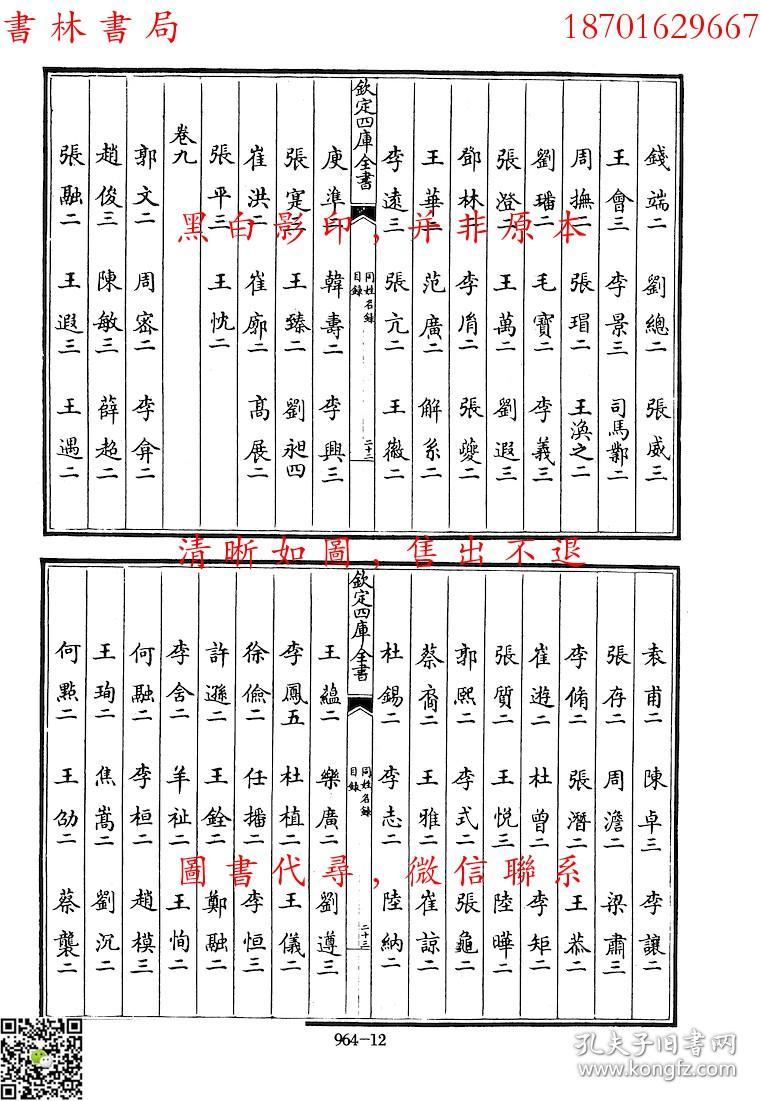 書林書局
18701629667
錢端二 劉總二 張威三
王會三 李景三 司馬鄴二
周撫二 張瑁二 王渙之二
劉璠二 毛寶二 李義三
張澄二 王萬二 劉遐三
鄧林二 李胤二 張夔二
王華二 范廣二 解系二
李遠三 張亢二 王徽二
欽定四庫全書
同姓名錄
目錄
二十二
庾準二 韓壽二 李興三
張寔二 王臻二 劉昶四
崔洪二 崔廓二 高展二
張平三 王忱二
卷九
郭文二 周宻二 李弇二
趙俊三 陳敏三 薛超二
張融二 王遐三 王遇二
黑白影印,并非原本
清晰如圖,售出不退
袁甫二 陳卓三 李讓二
張存二 周澹二 梁肅三
李脩二 張潛二 王恭二
崔遊二 杜曾二 李矩二
張質二 王悅三 陸曄二
郭熙二 李式二 張龜二
蔡裔二 王雅二 崔諒二
杜錫二 李志二 陸納二
欽定四庫全書
同姓名錄
目錄
二十三
王蘊二 樂廣二 劉遵三
李鳳五 杜植二 王儀二
徐儉二 任播二 李恒三
許遜二 王銓二 鄭融二
李含二 羊祉二 王恂二
何融二 李桓二 趙模三
王珣二 焦嵩二 劉沉二
何點二 王劭二 蔡襲二
圖書代尋,微信聯系
964-12
孔夫子旧書网
www.kongfz.com